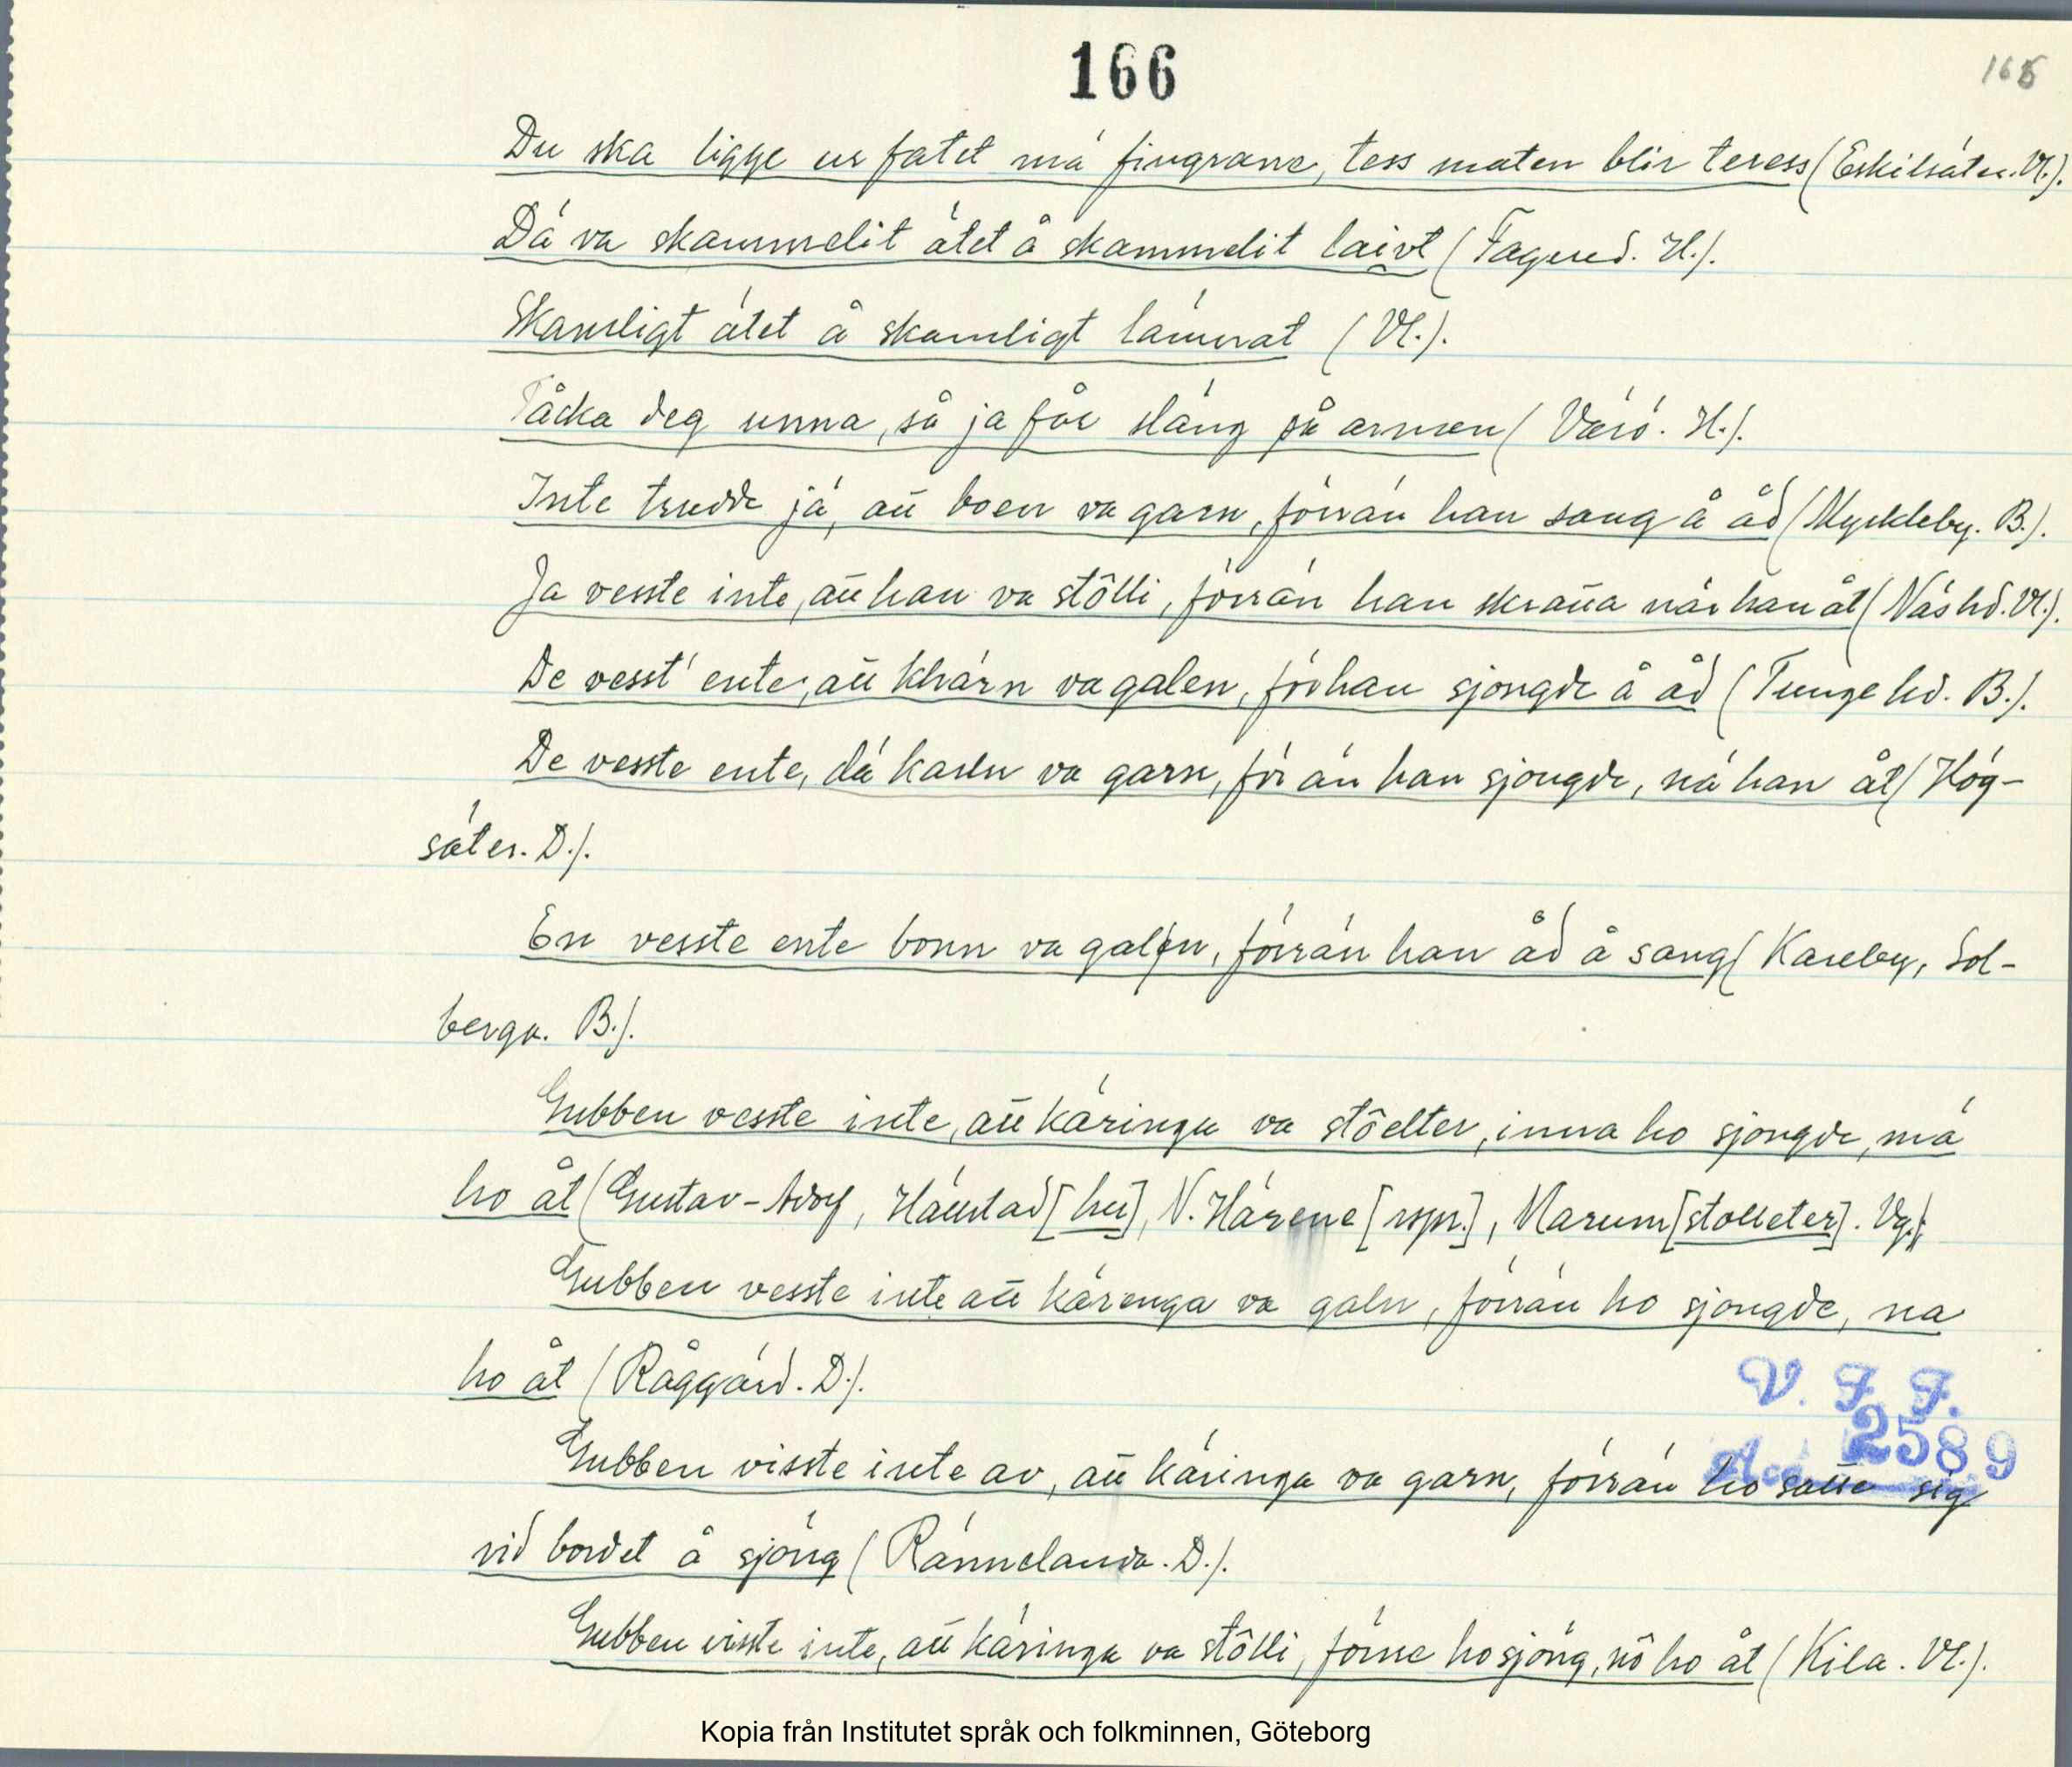 166
165
Du ska ligge ur fatet mä fingrane, tess maten blir teress (Eskilsäter. Vl.).
Dä va skammelit ätet å skammelit laivt (Fagered. H.).
Skamligt ätet å skamligt lämnat (Vl.).
Täcka deg unna, så ja får släng på armen (Värö. H.).
Inte trudde jä, att boen va garn, förrän han sang å åd (Myckleby. B.).
Ja vesste inte, att han va stôlli, förrän han skråla när han åt (Näs hd. Vl.).
De vesst' ente, att khärn va galen, för han sjongde å åd (Tunge hd. B.).
De vesste ente, dä karln va garn, för än han sjongde, nä han åt (Hög-
säter. D.).
En vesste ente bonn va galen, förrän han åd å sang (Kareby, Sol-
berga. B.).
Gubben vesste inte, att käringa va stôllter, inna ho sjongde, mä
ho åt (Gustav-Adolf, Händstad [hu], N. Härene [rspr.], Marum [stolleter]. Vg.).
Gubben vesste inte att kärenga va galn, förrän ho sjongde, na
ho åt (Råggärd. D.).
V. F. F.
Acc 2589
Gubben visste inte av, att käringa va garn, förrän ho satte sig
vid bordet å sjöng (Rännelanda. D.).
Gubben visste inte, att käringa va stôlli, förrne ho sjöng, nô ho åt (Kila. Vl.).
Kopia från Institutet språk och folkminnen, Göteborg